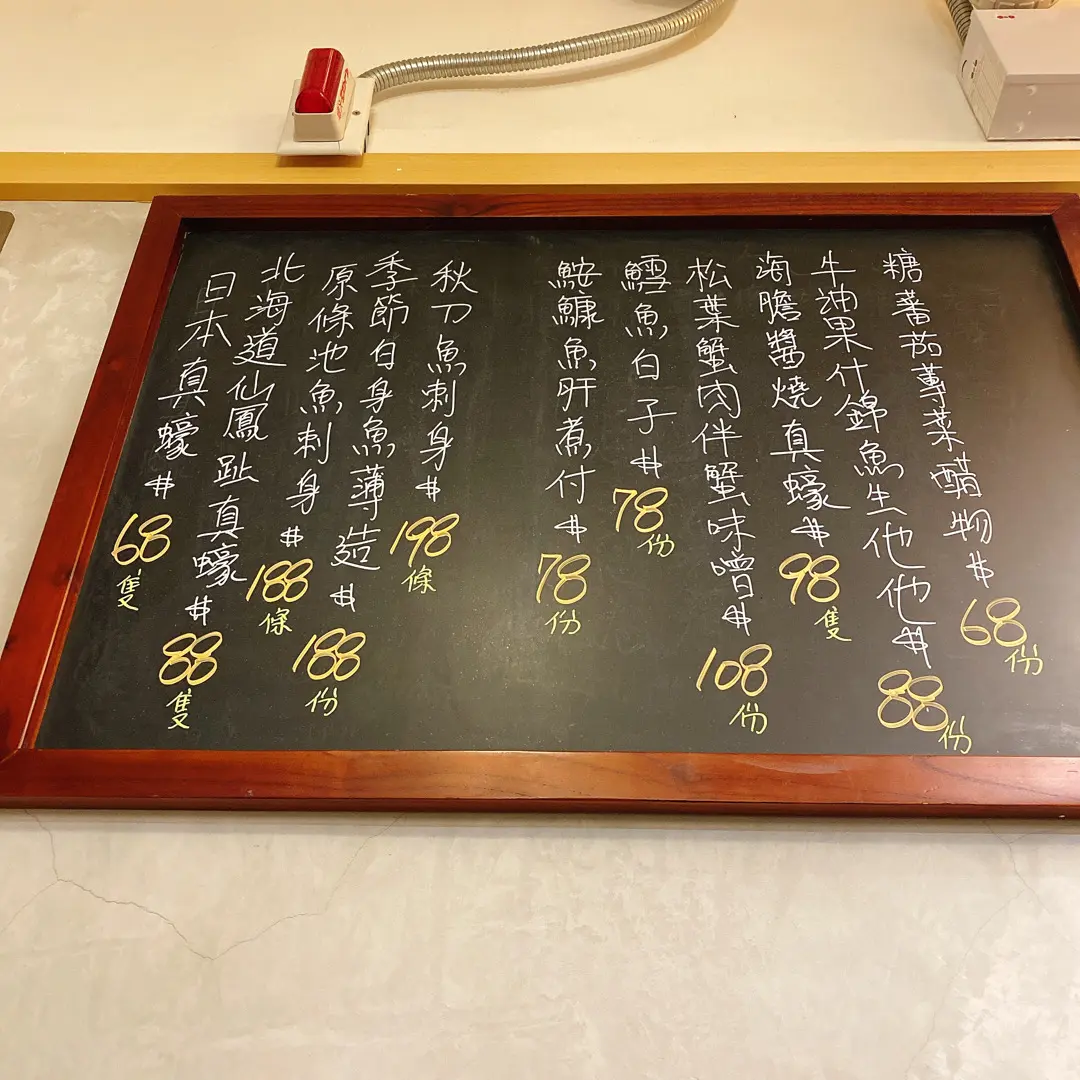 糖蕃茄蓴菜醋物$68份
牛油果什錦魚生他他$88份
海膽醬燒真蠔$98隻
松葉蟹肉伴蟹味噌$108份
鱈魚白子$78份
鮟鱇魚肝煮付$78份
秋刀魚刺身$198條
季節白身魚薄造$188份
原條池魚刺身$188條
北海道仙鳳趾真蠔$88隻
日本真蠔$68隻